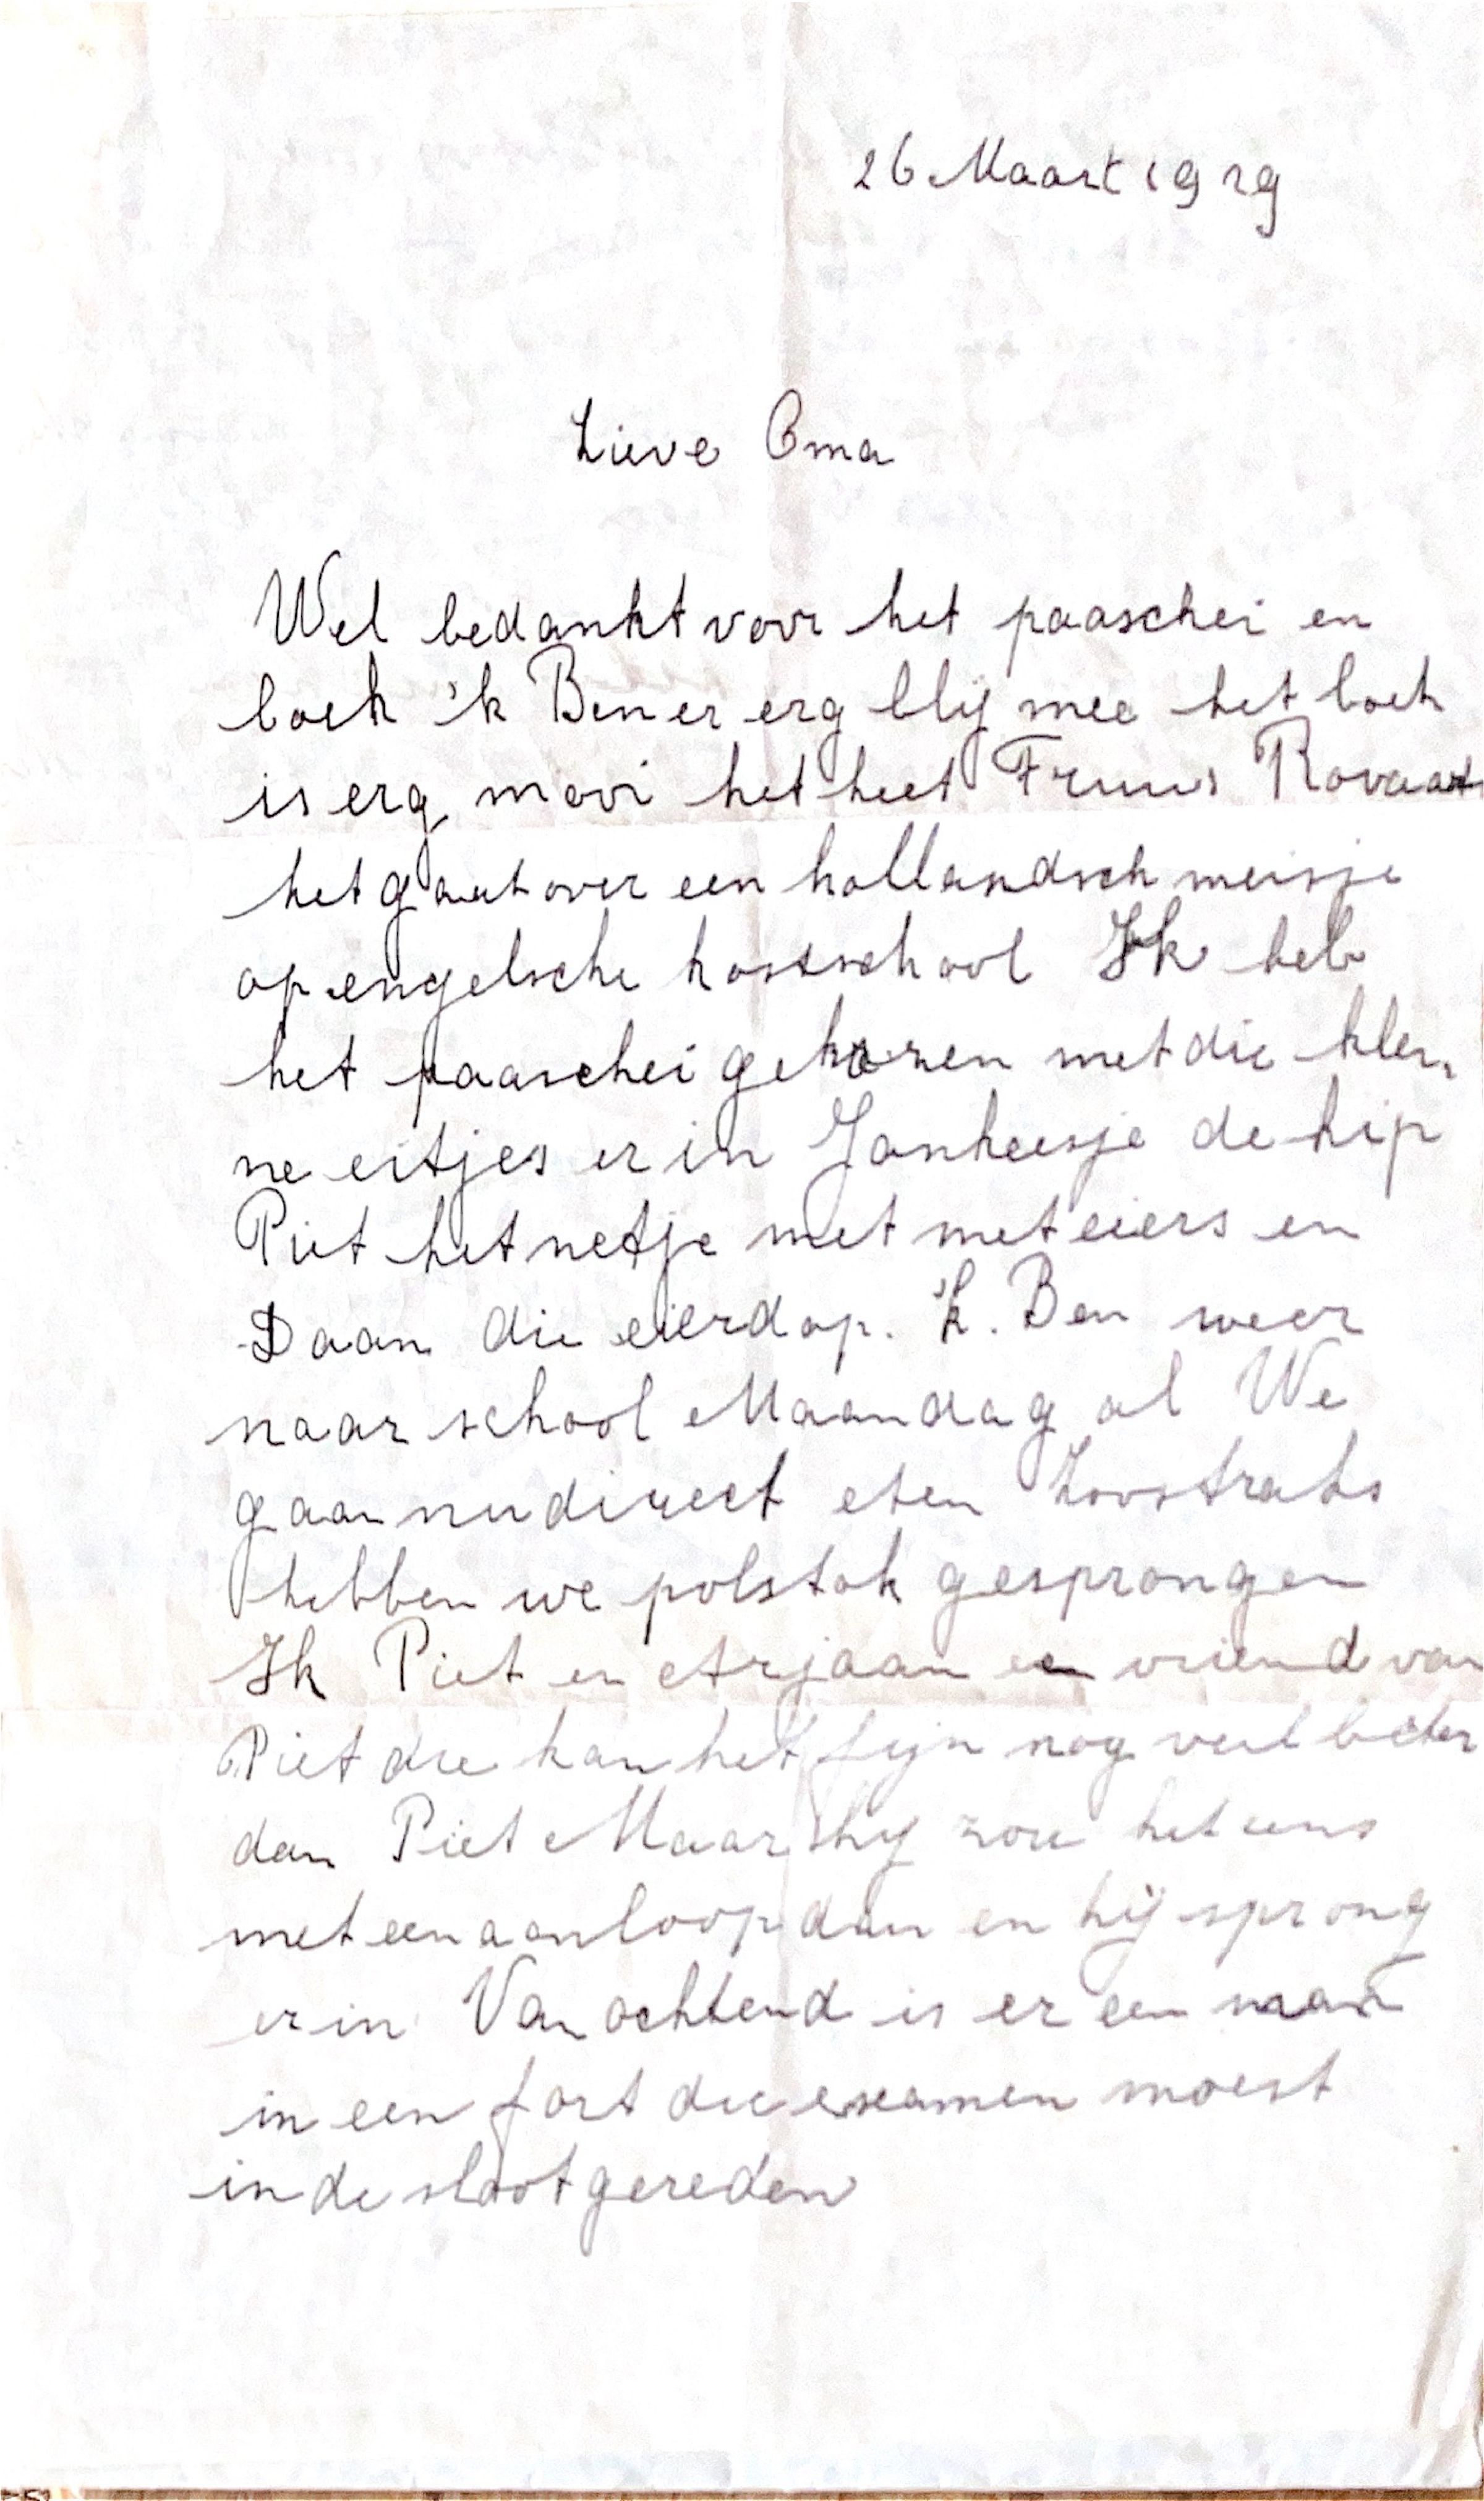 26 Maart 1929
Lieve Oma
Wel bedankt voor het paaschei en
boek 'k Ben er erg bly mee het boek
is erg mooi het heet Fruus Rovaart
het gaat over een hollandsch meisje
op engelsche kostschool Ik heb
het paaschei gekozen met die klei,
ne eitjes er in Jankeesje de kip
Piet het netje met met eiers en
Daan die eierdop. 'k. Ben weer
naar school Maandag al We
gaan nu direct eten
hebben we polstok gesprongen
Ik Piet en Arjaan een vriend van
Piet die kan het fijn nog veel beter
dan Piet Maar hy zou het eens
met een aanloop dan en hij sprong
er in Van ochtend is er een man
in een fort die examen moest
in de sloot gereden